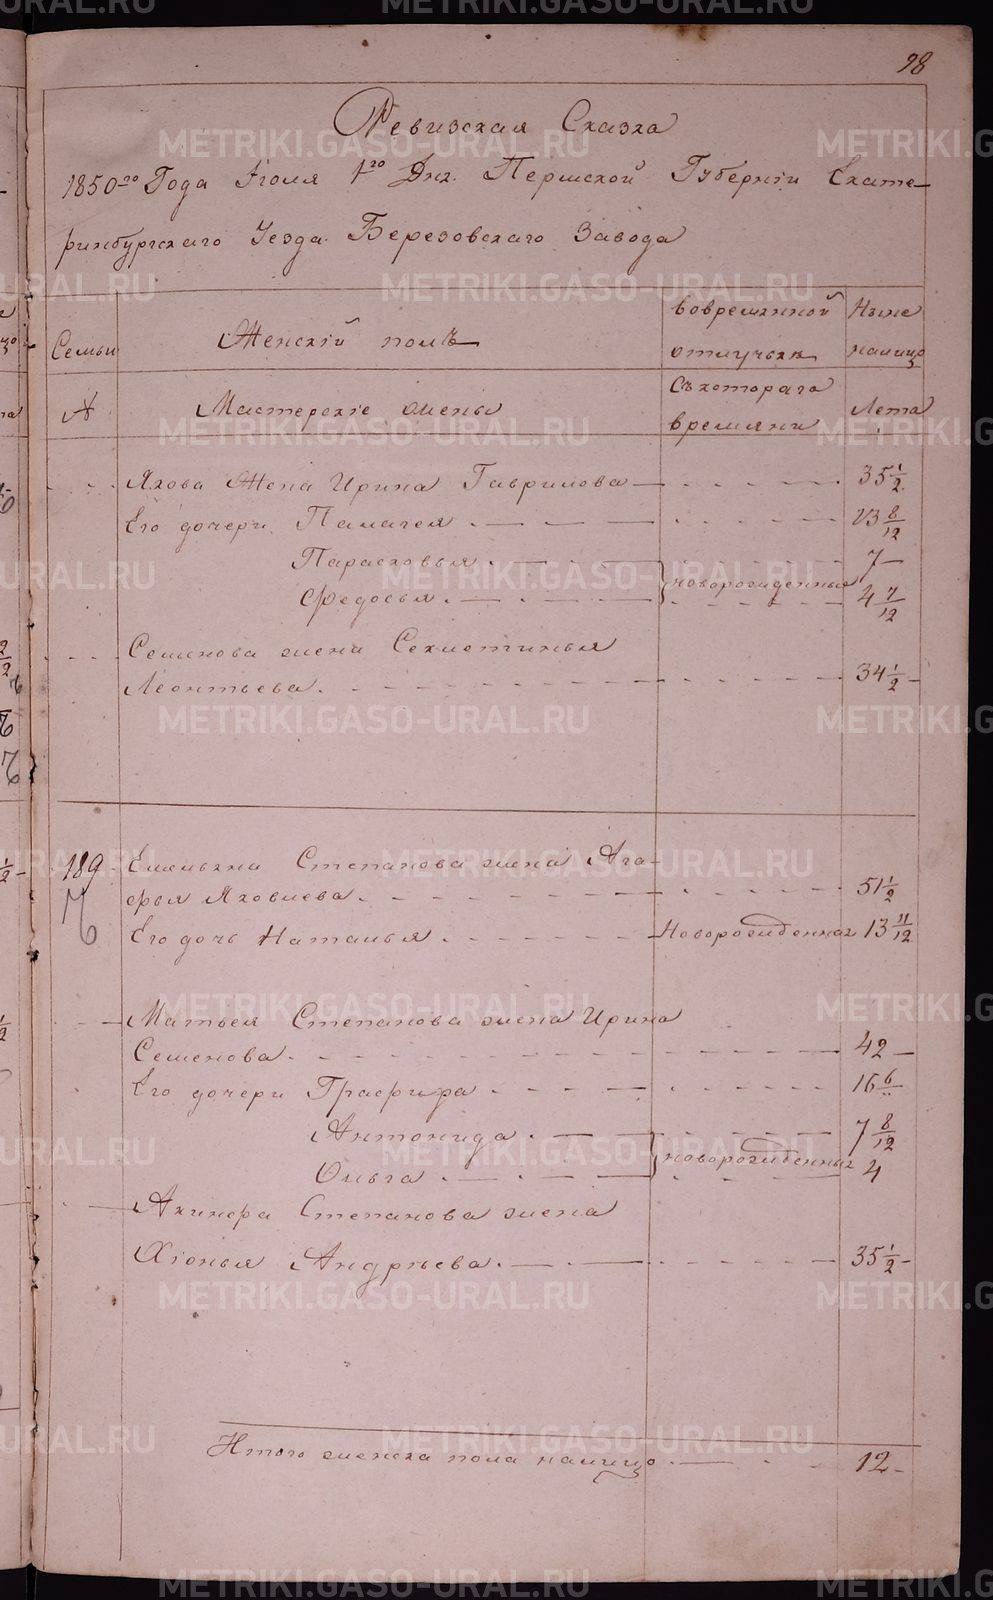 98
Ревизская Сказка
1850го Года Іюля 1го Дня. Пермской Губерніи Екате-
ринбургскаго Уезда Березовскаго Завода
Семьи
Женскій полъ
Вовременной
отлучьке
Ныне
налицо
№
Мастерскіе жены
Съкотораго
времяни
Лета
Якова Жена Ирина Гаврилова 35 1/2
Его дочери Палагея 13 8/12
Парасковья 7
новорожденныя
Федосья 4 7/12
Семинова жена Секлетинья
Леонтьева 34 1/2
189 Емельяна Степанова жена Ага-
фья Яковлева 51 1/2
Его дочь Наталья Новорожденная 13 11/12
Матвея Степанова жена Ирина
Семенова 42
Его дочериГрафира 16 6/"
Антонида 7 8/12
новорожденныя
Ольга 4
Акинфа Степанова жена
Хіонья Андрѣева 35 1/2
Итого женска пола налицо 12
METRIKI.GASO-URAL.RU